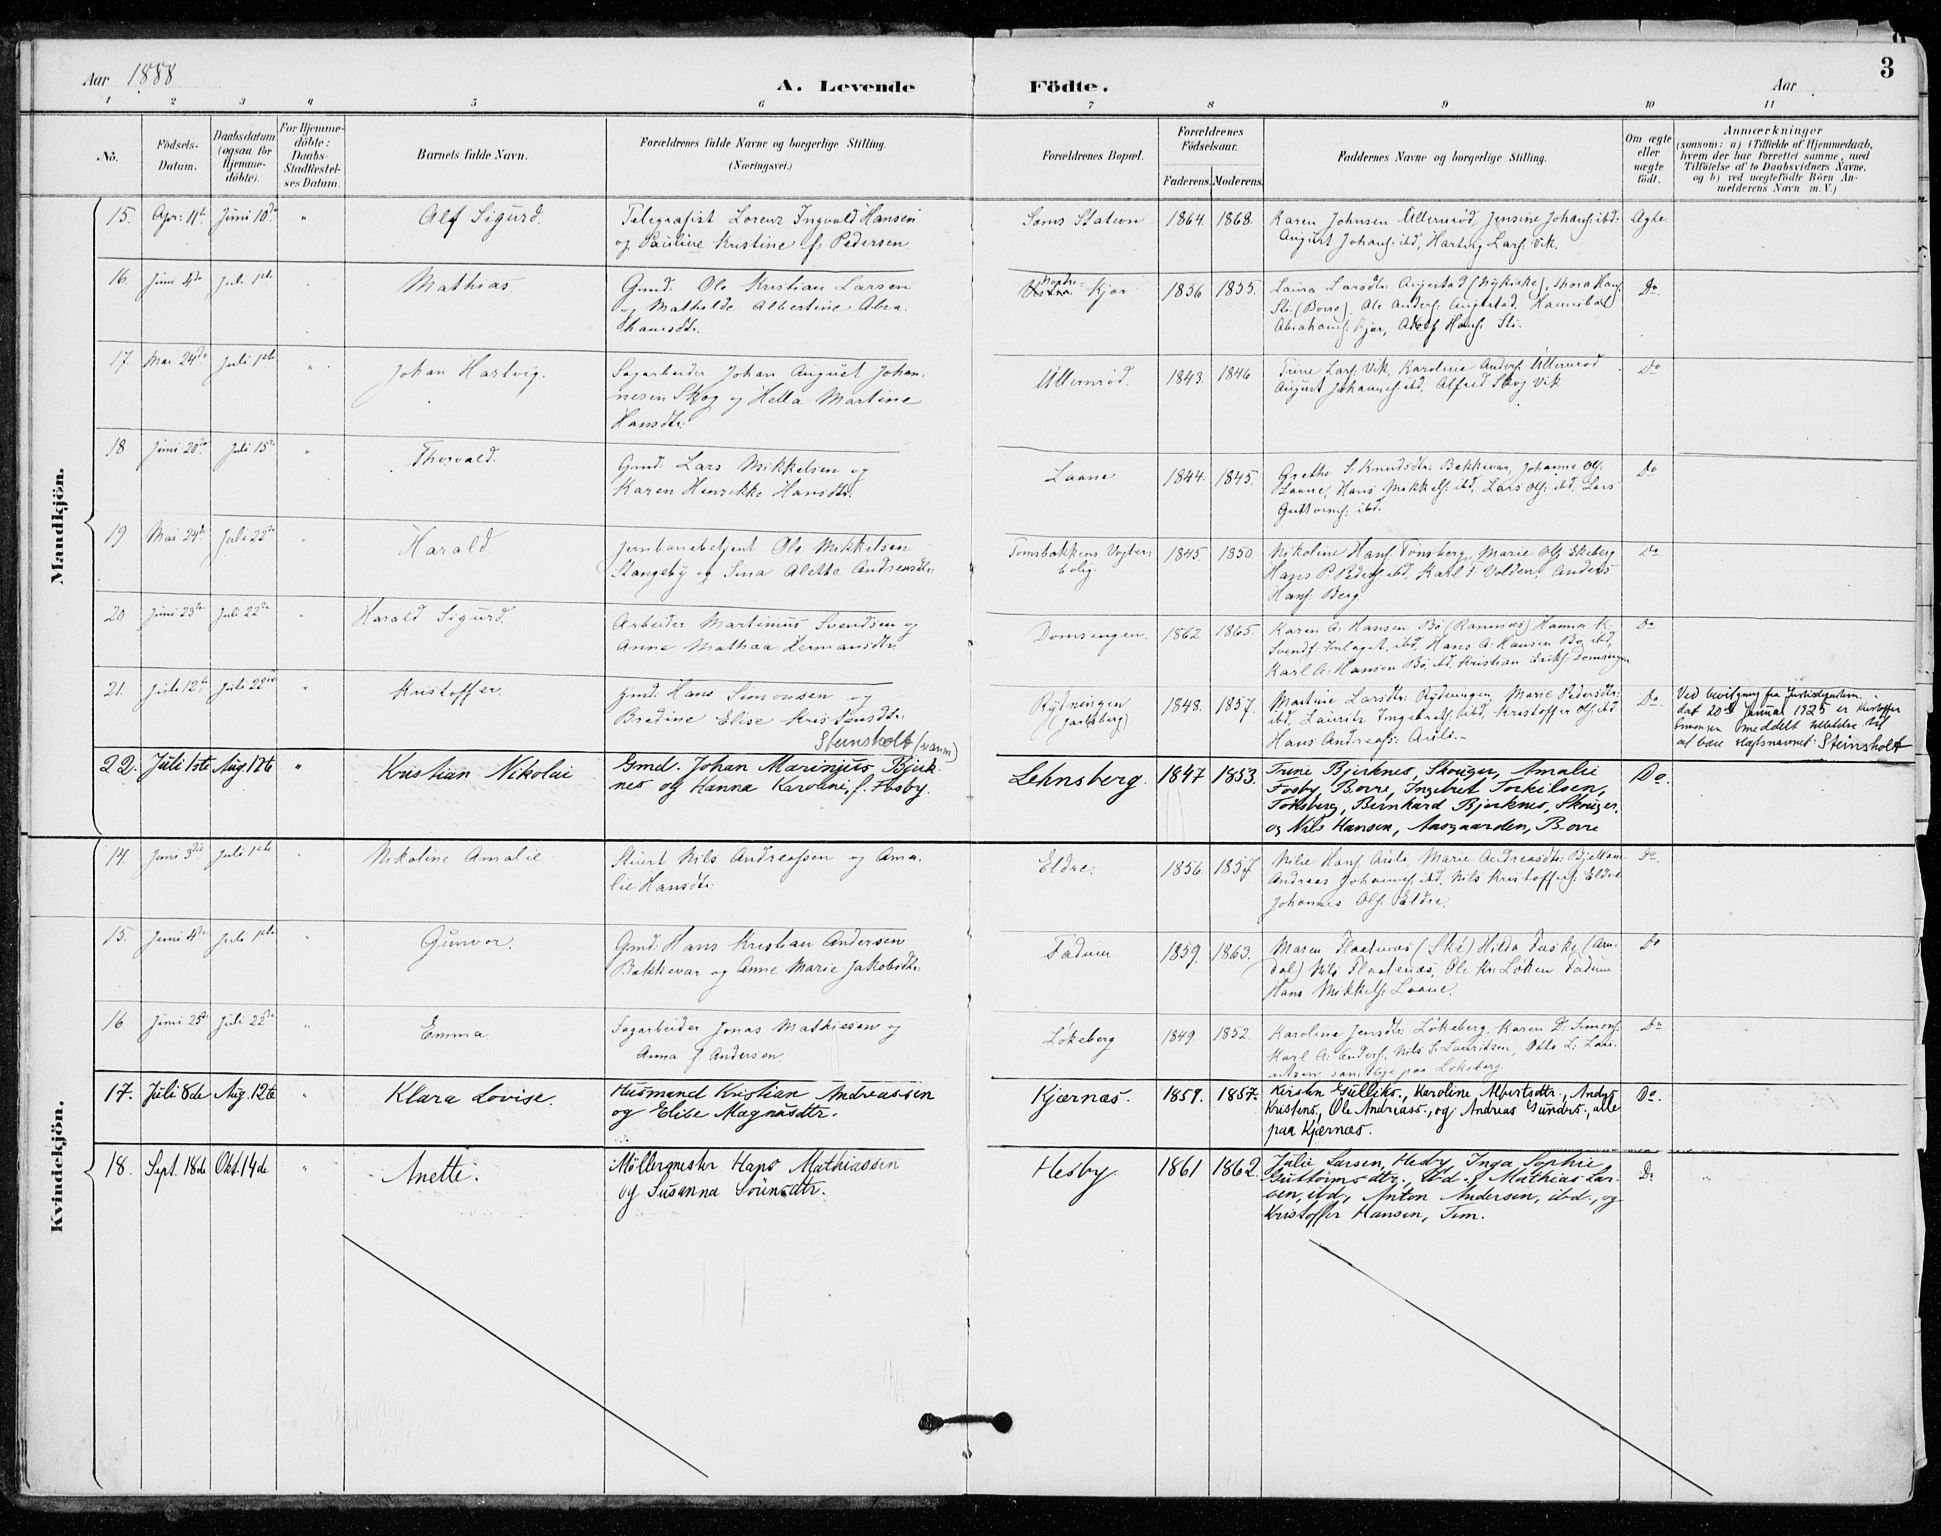 Aar 1888
A. Levende Födte.
Aar
3
1 2 3 4 5 6 7 8 9 10 11
No.
Födsels-
Datum.
Daabsdatum
(ogsaa for
Hjemme-
döbte).
For Hjemme-
döbte:
Daabs-
Stadfæstel-
ses Datum.
Barnets fulde Navn.
Forældrenes fulde Navne og borgerlige Stilling.
(Næringsvei.)
Forældrenes Bopæl.
Forældrenes
Födselsaar.
Faderens. Moderens.
Faddernes Navne og borgerlige Stilling.
Om ægte
eller
uægte
födt.
Anmærkninger
(saasom: a) i Tilfælde af Hjemmedaab,
hvem der har forrettet samme, med
Tilföielse af to Daabsvidners Navne.
og b) ved uægtefödte Börn An-
melderens Navn m. V.)
Mandkjön.
15. Apr. 11te Juni 10de " Alf Sigurd. Telegrafist Lorenz Ingvald Hansen
og Pauline Kristine f. Pedersen
Sems Station 1864. 1868. Karen Johnsen Ullernrød, Jensine Johans. ibd.
August Johans. ibd, Hartvig Lars. Vik. Ægte
16. Juni 4de Juli 1ste Mathias Gmd. Ole Kristian Larsen
og Mathilde Albertine Abra-
hamsdtr.
Nordre Kjær 1856 1855. Laura Larsdtr. Augestad (Nykirke), Thora Hans.
Sti (Borre). Ole Anders. Augestad. Hannibal
Abrahams. Kjær, Adolf Hans. Sti. Do
17. Mai 24de Juli 1ste " Johan Hartvig. Sagarbeider Johan August Johan-
nesen Skog og Hella Martine
Hansdtr.
Ullernrød. 1843. 1846 Trine Lars. Vik, Karoline Anders. Ullernrød
August Johannes. ibd, Alfred Skog Vik Do
18 Juni 20de Juli 15de " Thorvald. Gmd. Lars Mikkelsen og
Karen Henrikke Hansdtr.
Laane 1844. 1845. Grethe S. Knudsdtr. Bakkevar, Johanne Ols.
Laane, Hans Mikkels. ibd, Lars Ols. ibd, Lars
Guttorms. ibd. Do
19 Mai 24de Juli 22de " Harald Jernbanebetjent Ole Mikkelsen
Stangeby og Sina Alette Andreasdtr.
Tomsbakkens Vogter-
bolig. 1845. 1850 Nikoline Hans. Tønsberg, Marie Ols. Ekeberg
Hans P. Peders. ibd, Karl T. Volden, Anders
Hans. Berg Do
20 Juni 23de Juli 22de " Harald Sigurd. Arbeider Martinius Svendsen og
Anne Mathea Hermansdtr.
Domsengen. 1862 1865. Karen A. Hansen Bø (Ramnes) Hanna K.
Svends. ibd, Hans A. Hansen Bø ibd,
Karl A. Hansen Bø ibd, Kristian Eriks. Domsengen Do
21. Juli 12te Juli 22de " Kristoffer. Gmd. Hans Simonsen og
Bredine Elise Kristensdtr.
Steinsholt (navn)
Rydningen
(Jarlsberg) 1848. 1857. Martine Larsdtr. Rydningen, Marie Pedersdtr.
ibd, Lauritz Ingebrets. ibd, Kristoffer Ols. ibd
Hans Andreas. Auli. Do.
Ved bevilgning fra Justisdepartem.
dat 20de Januar 1925 er Kristoffer
Simonsen meddelt tilladelse til
at bære slægtsnavnet: Steinsholt
22. Juli 1ste Aug. 12te " Kristian Nikolai Gmd. Johan Marinius Bjerk-
nes og Hanna Karoline, f. Fosby.
Lehnsberg. 1847 1853. Trine Bjerknes, Skouger, Amalie
Fosby, Borre, Ingebret Torkilsen,
Tønsberg, Bernhard Bjerknes, Skouger,
og Nils Hansen, Aasgaarden, Borre Do.
Kvindekjön.
14. Juni 3die Juli 1ste Nikoline Amalie Nils Andreassen og Ama-
lie Hansdtr.
Eldre. 1856. 1857 Nilia Hans. Auli, Marie Andreasdtr.
Andreas Johannes. ibd, Nils Kristoffers. Eldre
Johannes Ols. Eldre. Do.
15. Juni 4de Juli 1ste " Gunvor. Gmd. Hans Kristian Andersen
Bakkevar og Anne Marie Jakobsdtr.
Fadum 1859. 1863. Maren Flaatenæs (Ski) Hilda Faske (Arn-
dal) Nils Flaatenæs, Ole Kr. Løken Fadum
Hans Mikkels. Laane. Do
16. Juni 25de Juli 22de " Emma Sagarbeider Jonas Mathiesen og
Anna f. Andersen
Løkeberg 1849. 1852. Karoline Jensdtr. Løkeberg, Karen D. Simons.
Karl A. Anders. Nils S. Lauritsen, Otto L. Lau-
ritzen samtlige paa Løkeberg Do
17. Juli 8de Aug. 12te " Klara Lovise. Husmand Kristian Andreassen
og Elise Magnusdtr.
Kjærnæs. 1859. 1857. Kirsten Gulliks., Karoline Albertsdtr., Andrs
Kristens, Ole Andreass., og Andreas Gunders., alle
paa Kjærnæs. Do.
18. Sept. 18de Okt. 14de " Anette. Möllermester Hans Mathiassen
og Susanna Sörensdtr.
Hesby. 1861 1862. Julie Larsen, Hesby, Inga Sophie
Guttormsdtr., ibd., Mathias Lar-
sen, ibd., Anton Andersen, ibd., og
Kristoffer Hansen, Tem. Do "